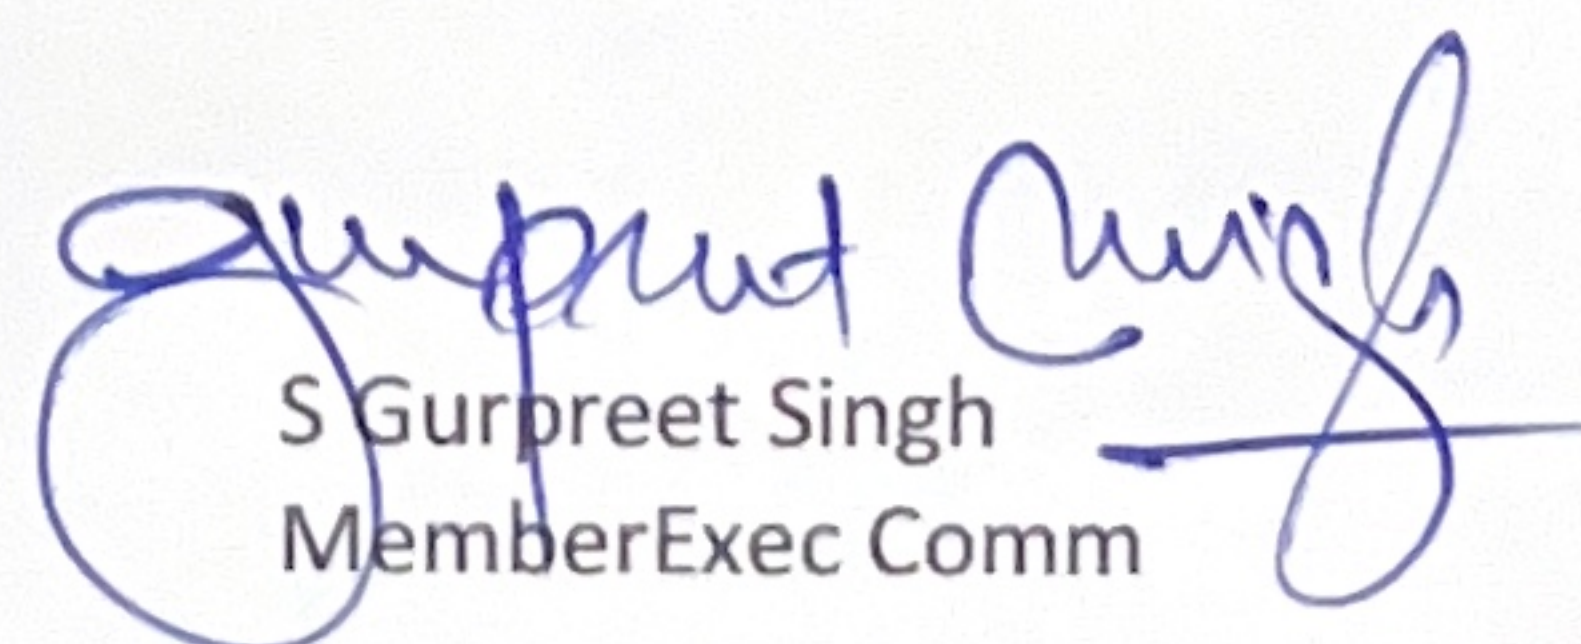 Gurpreet Singh
S Gurpreet Singh
MemberExec Comm